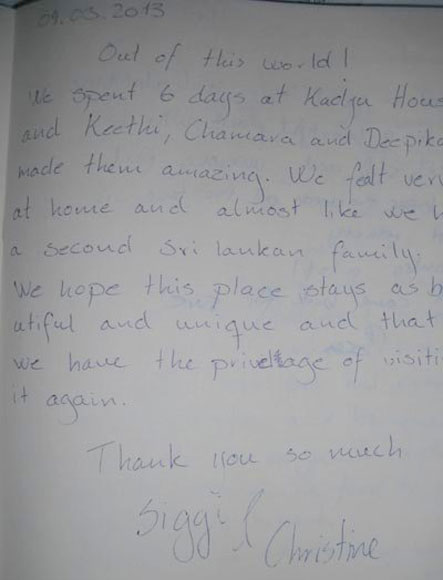 09.03.2013
Out of this world!
We spent 6 days at Kadju Hous
and Keethi, Chamara and Deepika
made them amazing. We fealt very
at home and almost like we h
a second Sri lankan family.
We hope this place stays as b
utiful and unique and that
we have the privelage of visiti
it again.
Thank you so much
Siggi & Christine